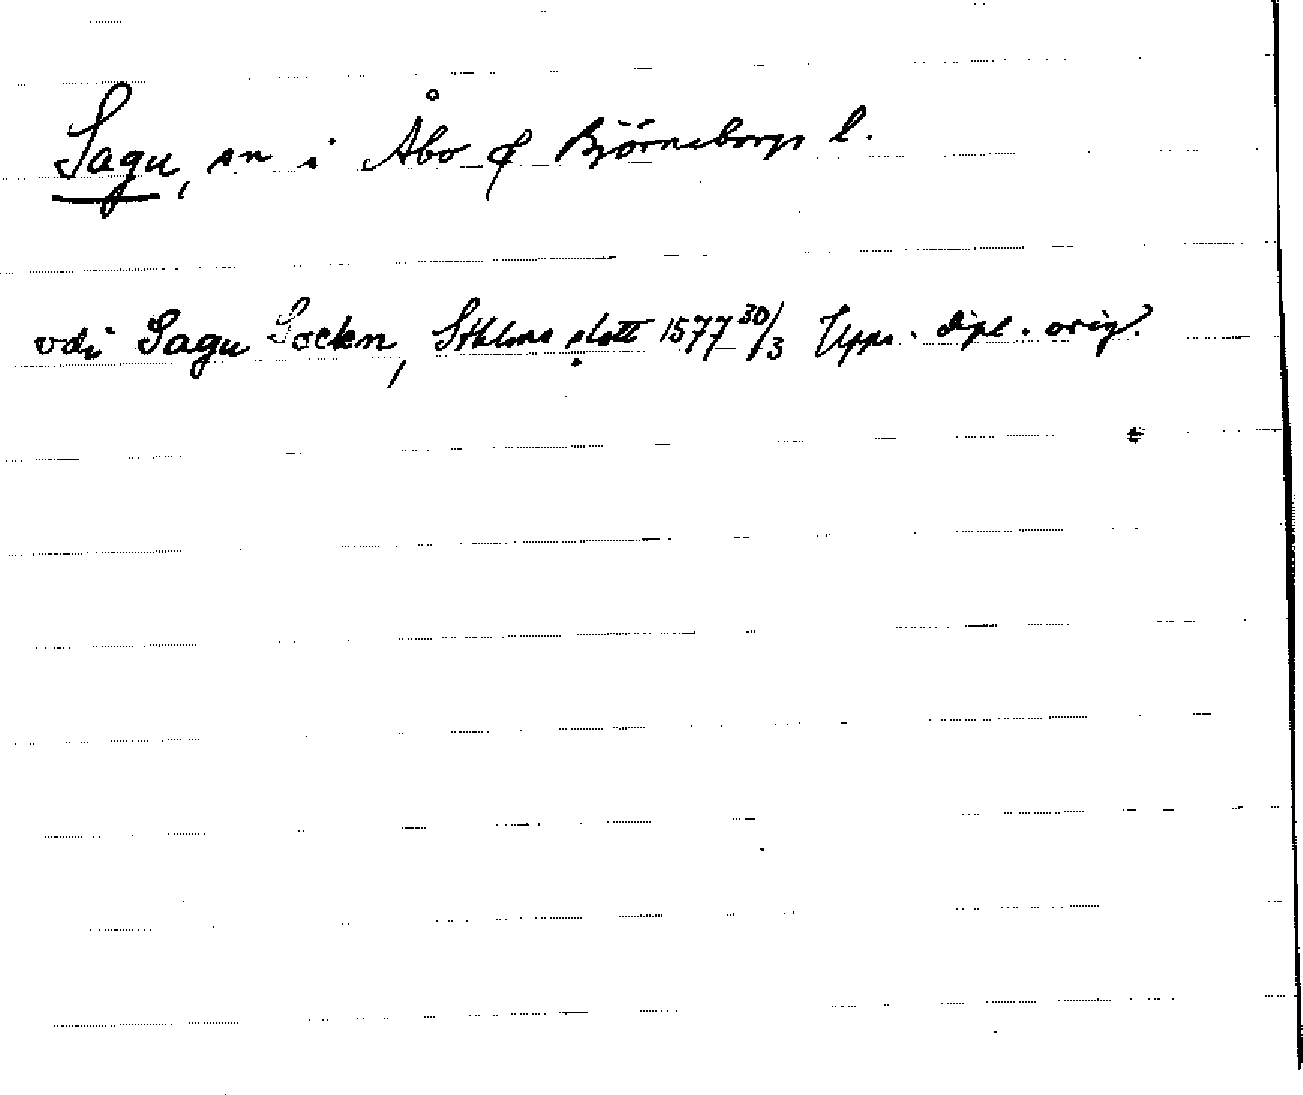 Sagu, sn i Åbo & Björneborgs l.
vdi Sagu Sockn, Sthlms slott 1577 30/3 Upps. dipl. orig.